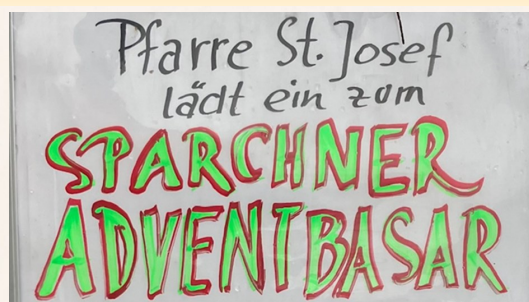 Pfarre St. Josef
lädt ein zum
SPARCHNER
ADVENTBASAR